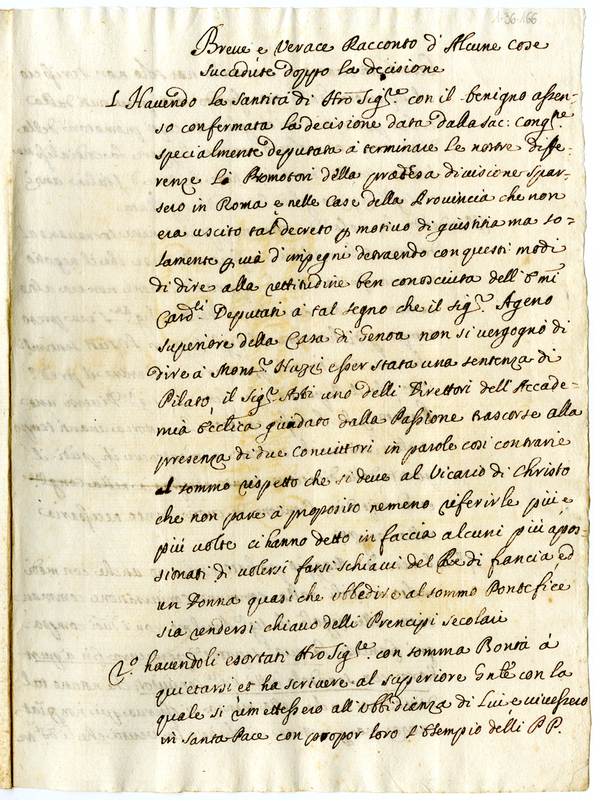 1-36-166
Breve e Verace Racconto d'Alcune cose
succedute doppo la decisione
1 Havendo la santità di Nro Sigre con il benigno assen-
so confermata la decisione data dalla sac: Congne
specialmente deputata à terminare le nostre diffe-
renze Li Promotori della pretesa divisione spar-
sero in Roma e nelle Case della Provincia che non
era uscito tal decreto p motivo di giustitia ma so-
lamente p via d'impegni detraendo con questi modi
di dire alla rettitudine ben conosciuta dell' Emi
Cardli Deputati à tal segno che il sigr Ageno
superiore della Casa di Genoa non si vergognò di
dire à Monsr Nuzij esser stata una sentenza di
Pilato, il sigr Asti uno delli Direttori dell'Accade-
mia Ecclica guidato dalla Passione trascorse alla
presenza di due Convittori in parole così contrarie
al sommo rispetto che si deve al Vicario di Christo
che non pare à proposito nemeno riferirle più e
più volte ci hanno detto in faccia alcuni più apas-
sionati di volersi farsi schiavi del Re di francia, ed
un Donna quasi che ubbedire al sommo Pontefice
sia rendersi chiavo delli Prencipi secolari
2.o havendoli esortati Nro Sigre con somma Bontà à
quietarsi et ha scrivere al superiore Gnle con la
quale si rimettessero all'Ubbidienza di Lui, e vivessero
in santa Pace con propor loro l'Esempio delli PP.